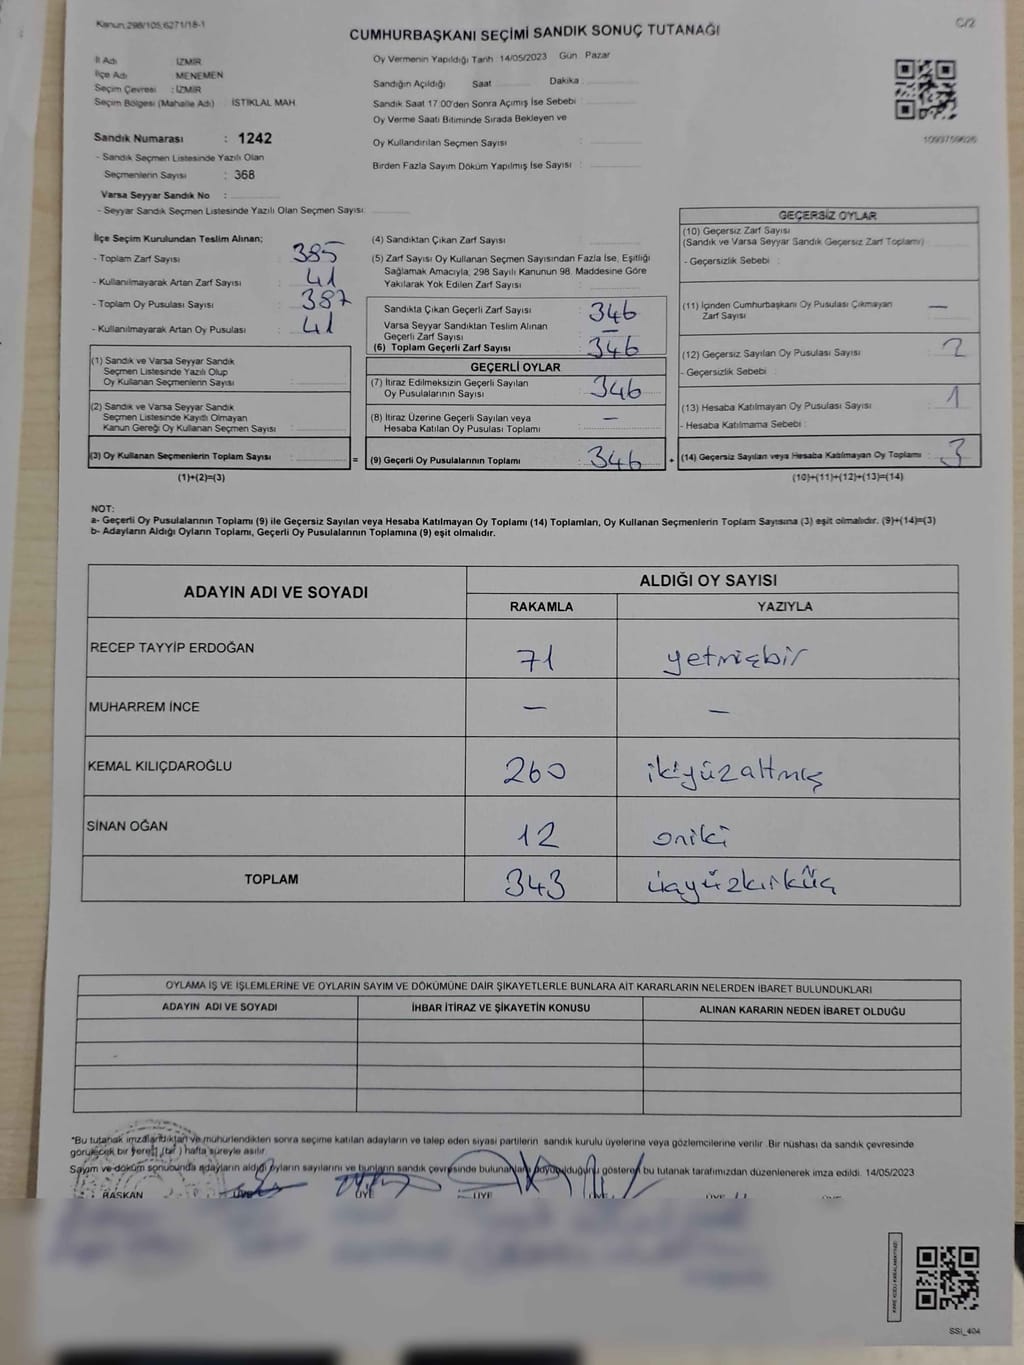 Kanun,298/105,6271/18-1
C/2
CUMHURBAŞKANI SEÇİMİ SANDIK SONUÇ TUTANAĞI
İl Adı : İZMİR
İlçe Adı : MENEMEN
Seçim Çevresi : İZMİR
Seçim Bölgesi (Mahalle Adı) : İSTİKLAL MAH.
Sandık Numarası : 1242
- Sandık Seçmen Listesinde Yazılı Olan
Seçmenlerin Sayısı : 368
Varsa Seyyar Sandık No :
- Seyyar Sandık Seçmen Listesinde Yazılı Olan Seçmen Sayısı
Oy Vermenin Yapıldığı Tarih 14/05/2023 Gün Pazar
Sandığın Açıldığı Saat Dakika
Sandık Saat 17:00'den Sonra Açımış İse Sebebi :
Oy Verme Saati Bitiminde Sırada Bekleyen ve
Oy Kullandırılan Seçmen Sayısı :
Birden Fazla Sayım Döküm Yapılmış İse Sayısı :
1093759626
İlçe Seçim Kurulundan Teslim Alınan;
- Toplam Zarf Sayısı : 385
- Kullanılmayarak Artan Zarf Sayısı : 41
- Toplam Oy Pusulası Sayısı : 387
- Kullanılmayarak Artan Oy Pusulası : 41
(1) Sandık ve Varsa Seyyar Sandık
Seçmen Listesinde Yazılı Olup
Oy Kullanan Seçmenlerin Sayısı :
(2) Sandık ve Varsa Seyyar Sandık
Seçmen Listesinde Kayıtlı Olmayan
Kanun Gereği Oy Kullanan Seçmen Sayısı :
(3) Oy Kullanan Seçmenlerin Toplam Sayısı : =
(1)+(2)=(3)
(4) Sandıktan Çıkan Zarf Sayısı :
(5) Zarf Sayısı Oy Kullanan Seçmen Sayısından Fazla İse, Eşitliği
Sağlamak Amacıyla, 298 Sayılı Kanunun 98. Maddesine Göre
Yakılarak Yok Edilen Zarf Sayısı :
Sandıkta Çıkan Geçerli Zarf Sayısı : 346
Varsa Seyyar Sandıktan Teslim Alınan
Geçerli Zarf Sayısı : —
(6) Toplam Geçerli Zarf Sayısı : 346
GEÇERLİ OYLAR
(7) İtiraz Edilmeksizin Geçerli Sayılan
Oy Pusulalarının Sayısı : 346
(8) İtiraz Üzerine Geçerli Sayılan veya
Hesaba Katılan Oy Pusulası Toplamı : —
(9) Geçerli Oy Pusulalarının Toplamı : 346 +
GEÇERSİZ OYLAR
(10) Geçersiz Zarf Sayısı
(Sandık ve Varsa Seyyar Sandık Geçersiz Zarf Toplamı)
- Geçersizlik Sebebi :
(11) İçinden Cumhurbaşkanı Oy Pusulası Çıkmayan
Zarf Sayısı : —
(12) Geçersiz Sayılan Oy Pusulası Sayısı : 2
- Geçersizlik Sebebi :
(13) Hesaba Katılmayan Oy Pusulası Sayısı : 1
- Hesaba Katılmama Sebebi :
(14) Geçersiz Sayılan veya Hesaba Katılmayan Oy Toplamı : 3
(10)+(11)+(12)+(13)=(14)
NOT:
a- Geçerli Oy Pusulalarının Toplamı (9) ile Geçersiz Sayılan veya Hesaba Katılmayan Oy Toplamı (14) Toplamları, Oy Kullanan Seçmenlerin Toplam Sayısına (3) eşit olmalıdır. (9)+(14)=(3)
b- Adayların Aldığı Oyların Toplamı, Geçerli Oy Pusulalarının Toplamına (9) eşit olmalıdır.
ADAYIN ADI VE SOYADI ALDIĞI OY SAYISI
RAKAMLA YAZIYLA
RECEP TAYYİP ERDOĞAN 71 yetmişbir
MUHARREM İNCE — —
KEMAL KILIÇDAROĞLU 260 ikiyüzaltmış
SİNAN OĞAN 12 oniki
TOPLAM 343 üçyüzkırküç
OYLAMA İŞ VE İŞLEMLERİNE VE OYLARIN SAYIM VE DÖKÜMÜNE DAİR ŞİKAYETLERLE BUNLARA AİT KARARLARIN NELERDEN İBARET BULUNDUKLARI
ADAYIN ADI VE SOYADI İHBAR İTİRAZ VE ŞİKAYETİN KONUSU ALINAN KARARIN NEDEN İBARET OLDUĞU
*Bu tutanak imzalandıktan ve mühürlendikten sonra seçime katılan adayların ve talep eden siyasi partilerin sandık kurulu üyelerine veya gözlemcilerine verilir. Bir nüshası da sandık çevresinde
görülecek bir yere 1 (bir) hafta süreyle asılır.
Sayım ve döküm sonucunda adayların aldığı oyların sayılarını ve bunların sandık çevresinde bulunanlara duyurulduğunu gösteren bu tutanak tarafımızdan düzenlenerek imza edildi. 14/05/2023
BAŞKAN ÜYE ÜYE ÜYE ÜYE ÜYE
SSİ_404